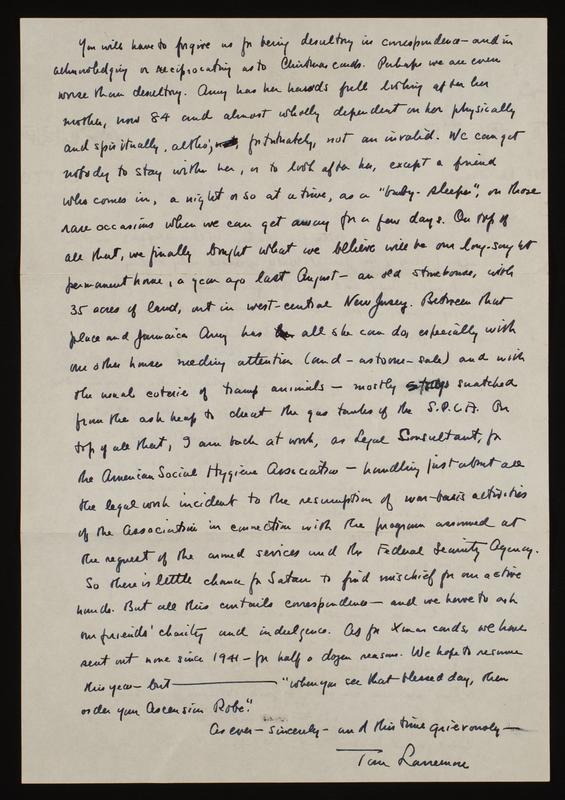 You will have to forgive us for being desultory in correspondence – and in
acknowledging or reciprocating as to Christmas cards. Perhaps we are even
worse than desultory. Amy has her hands full looking after her
mother, now 84 and almost wholly dependent on her physically
and spiritually, altho', fortunately, not an invalid. We can get
nobody to stay with her, or to look after her, except a friend
who comes in, a night or so at a time, as a "baby-sleeper", on those
rare occasions when we can get away for a few days. On top of
all that, we finally bought what we believe will be our long-sought
permanent house, a year ago last August – an old stonehouse, with
35 acres of land, out in west-central New Jersey. Between that
place and Jamaica Amy has all she can do, especially with
our other houses needing attention (and – as to one – sale) and with
the usual coterie of tramp animals – mostly snatched
from the ash heap to cheat the gas tanks of the S.P.C.A. On
top of all that, I am back at work, as Legal Consultant, for
the American Social Hygiene Association – handling just about all
the legal work incident to the resumption of war-basis activities
of the Association in connection with the program assumed at
the request of the armed services and the Federal Security Agency.
So there is little chance for Satan to find mischief for our active
hands. But all this curtails correspondence – and we have to ask
our friends' charity and indulgence. As for Xmas cards, we have
sent out none since 1941 – for half a dozen reasons. We hope to resume
this year – but ——— "when you see that blessed day, then
order your Ascension Robe".
As ever – sincerely – and this time grievously –
Tom Larremore